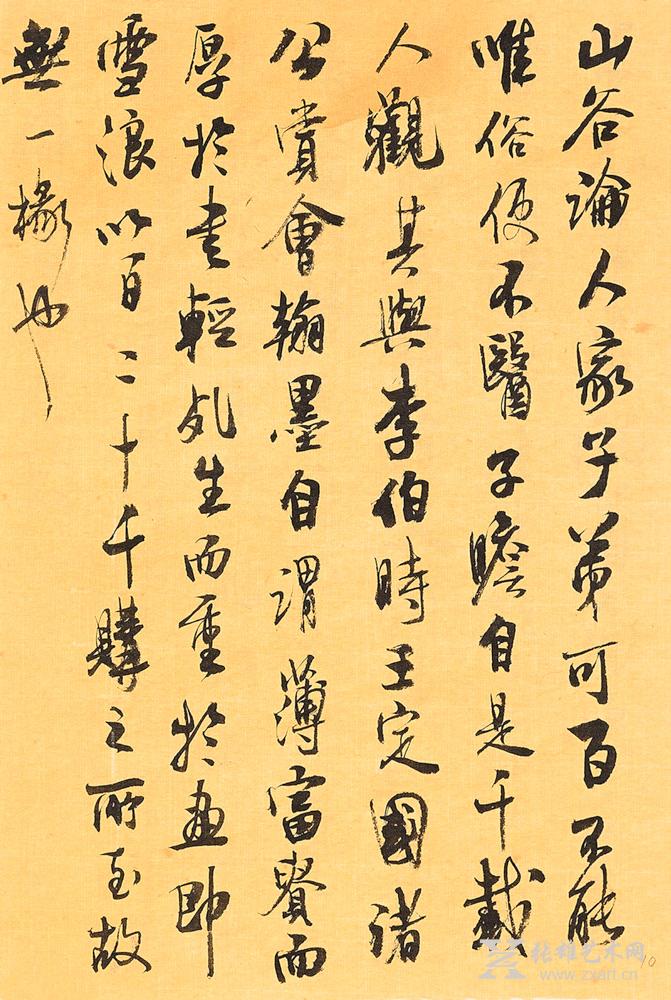 山谷論人家子弟可百不能
唯俗便不醫子瞻自是千載
人觀其與李伯時王定國諸
公賞會翰墨自謂薄富貴而
厚於書輕死生而重於畫即
雪浪以百二十千購之所至故
無一椽也
10
张雄艺术网
www.zxart.cn